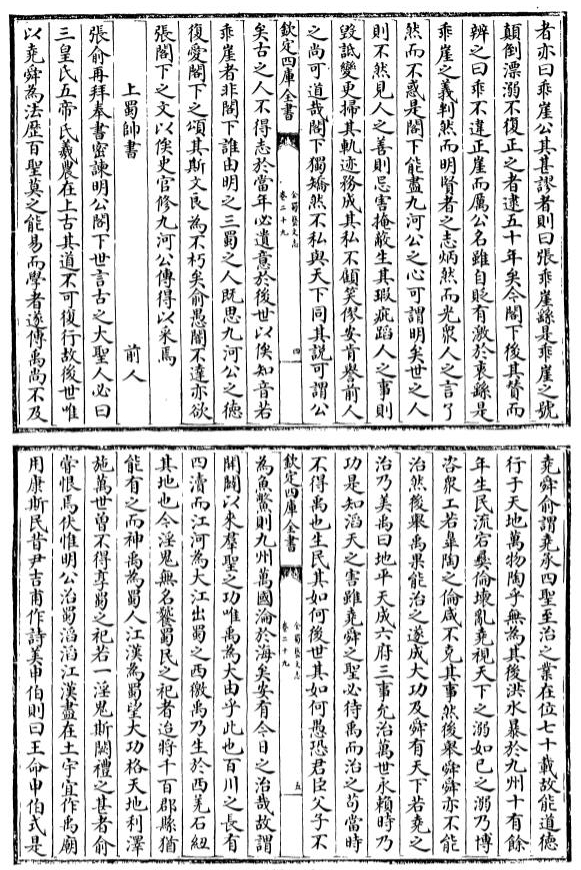 者亦曰乖崖公其甚謬者則曰張乖崖繇是乖崖之號
顛倒漂溺不復正之者逮五十年矣今閣下後其賛而
辨之曰乖不違正崖而厲公名雖自貶有激於衷繇是
乖崖之義判然而明賢者之志炳然而光衆人之言了
然而不惑是閣下能盡九河公之心可謂明矣世之人
則不然見人之善則忌害掩蔽生其瑕疵蹈人之事則
毀詆變更掃其軌迹務成其私不顧矣僇安肯譽前人
之尚可道哉閣下獨矯然不私與天下同其説可謂公
欽定四庫全書
全蜀藝文志
卷二十九
四
矣古之人不得志於當年必遺意於後世以俟知音若
乖崖者非閣下誰由明之三蜀之人既思九河公之德
復愛閣下之頌其斯文民為不朽矣俞愚闇不達亦欲
張閣下之文以俟史官修九河公傳得以采焉
上蜀帥書
前人
張俞再拜奉書密諫明公閣下世言古之大聖人必曰
三皇氏五帝氏羲農在上古其道不可復行故後世唯
以堯舜為法歴百聖莫之能易而學者遂傳禹尚不及
堯舜俞謂堯承四聖至治之業在位七十載故能道德
行于天地萬物陶乎無為其後洪水暴於九州十有餘
年生民流宕彛倫壊亂堯視天下之溺如已之溺乃博
咨衆工若臯陶之倫咸不克其事然後舉舜舜亦不能
治然後舉禹果能治之遂成大功及舜有天下若堯之
治乃美禹曰地平天成六府三事允治萬世永賴時乃
功是知滔天之害雖堯舜之聖必待禹而治之苟當時
不得禹也生民其如何後世其如何愚恐君臣父子不
欽定四庫全書
全蜀藝文志
卷二十九
五
為魚鼈則九州萬國淪於海矣安有今日之治哉故謂
開闢以來羣聖之功唯禹為大由乎此也百川之長有
四瀆而江河為大江出蜀之西徼禹乃生於西羌石紐
其地也今淫鬼無名饕蜀民之祀者迨將千百郡縣猶
能有之而神禹為蜀人江漢為蜀望大功格天地利澤
施萬世曽不得享蜀之祀若一淫鬼斯闕禮之甚者俞
嘗恨焉伏惟明公治蜀滔滔江漢盡在土宇宜作禹廟
用康斯民昔尹吉甫作詩美申伯則曰王命申伯式是